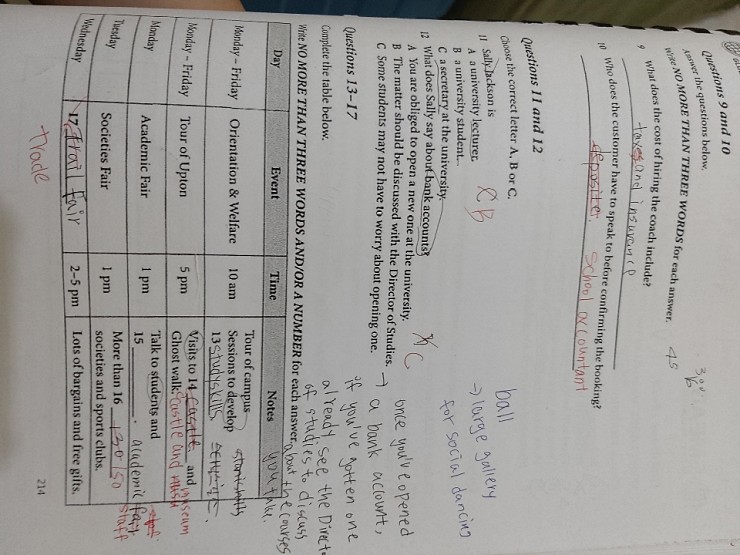 Questions 9 and 10
Answer the questions below.
Write NO MORE THAN THREE WORDS for each answer.
9 What does the cost of hiring the coach include?
taxes and insurance
45
10 Who does the customer have to speak to before confirming the booking?
school accountant
Questions 11 and 12
Choose the correct letter A, B or C.
11 Sally Jackson is
A a university lecturer.
B a university student.
C a secretary at the university.
X B
ball
→ large gallery
for social dancing
12 What does Sally say about bank accounts?
A You are obliged to open a new one at the university.
B The matter should be discussed with the Director of Studies.
C Some students may not have to worry about opening one.
X C
once you've opened
→ a bank account,
if you've gotten one
already see the Director
of studies to discuss
about the courses
you take.
Questions 13–17
Complete the table below.
Write NO MORE THAN THREE WORDS AND/OR A NUMBER for each answer.
Day Event Time Notes
Monday – Friday Orientation & Welfare 10 am Tour of campus
Sessions to develop
13 study skills
Monday – Friday Tour of Upton 5 pm Visits to 14 castle and
Ghost walk. castle and museum
Monday Academic Fair 1 pm Talk to students and
15 . academic
staff
Tuesday Societies Fair 1 pm More than 16 150
societies and sports clubs.
Wednesday 17 Trail Fair 2–5 pm Lots of bargains and free gifts.
trade
214